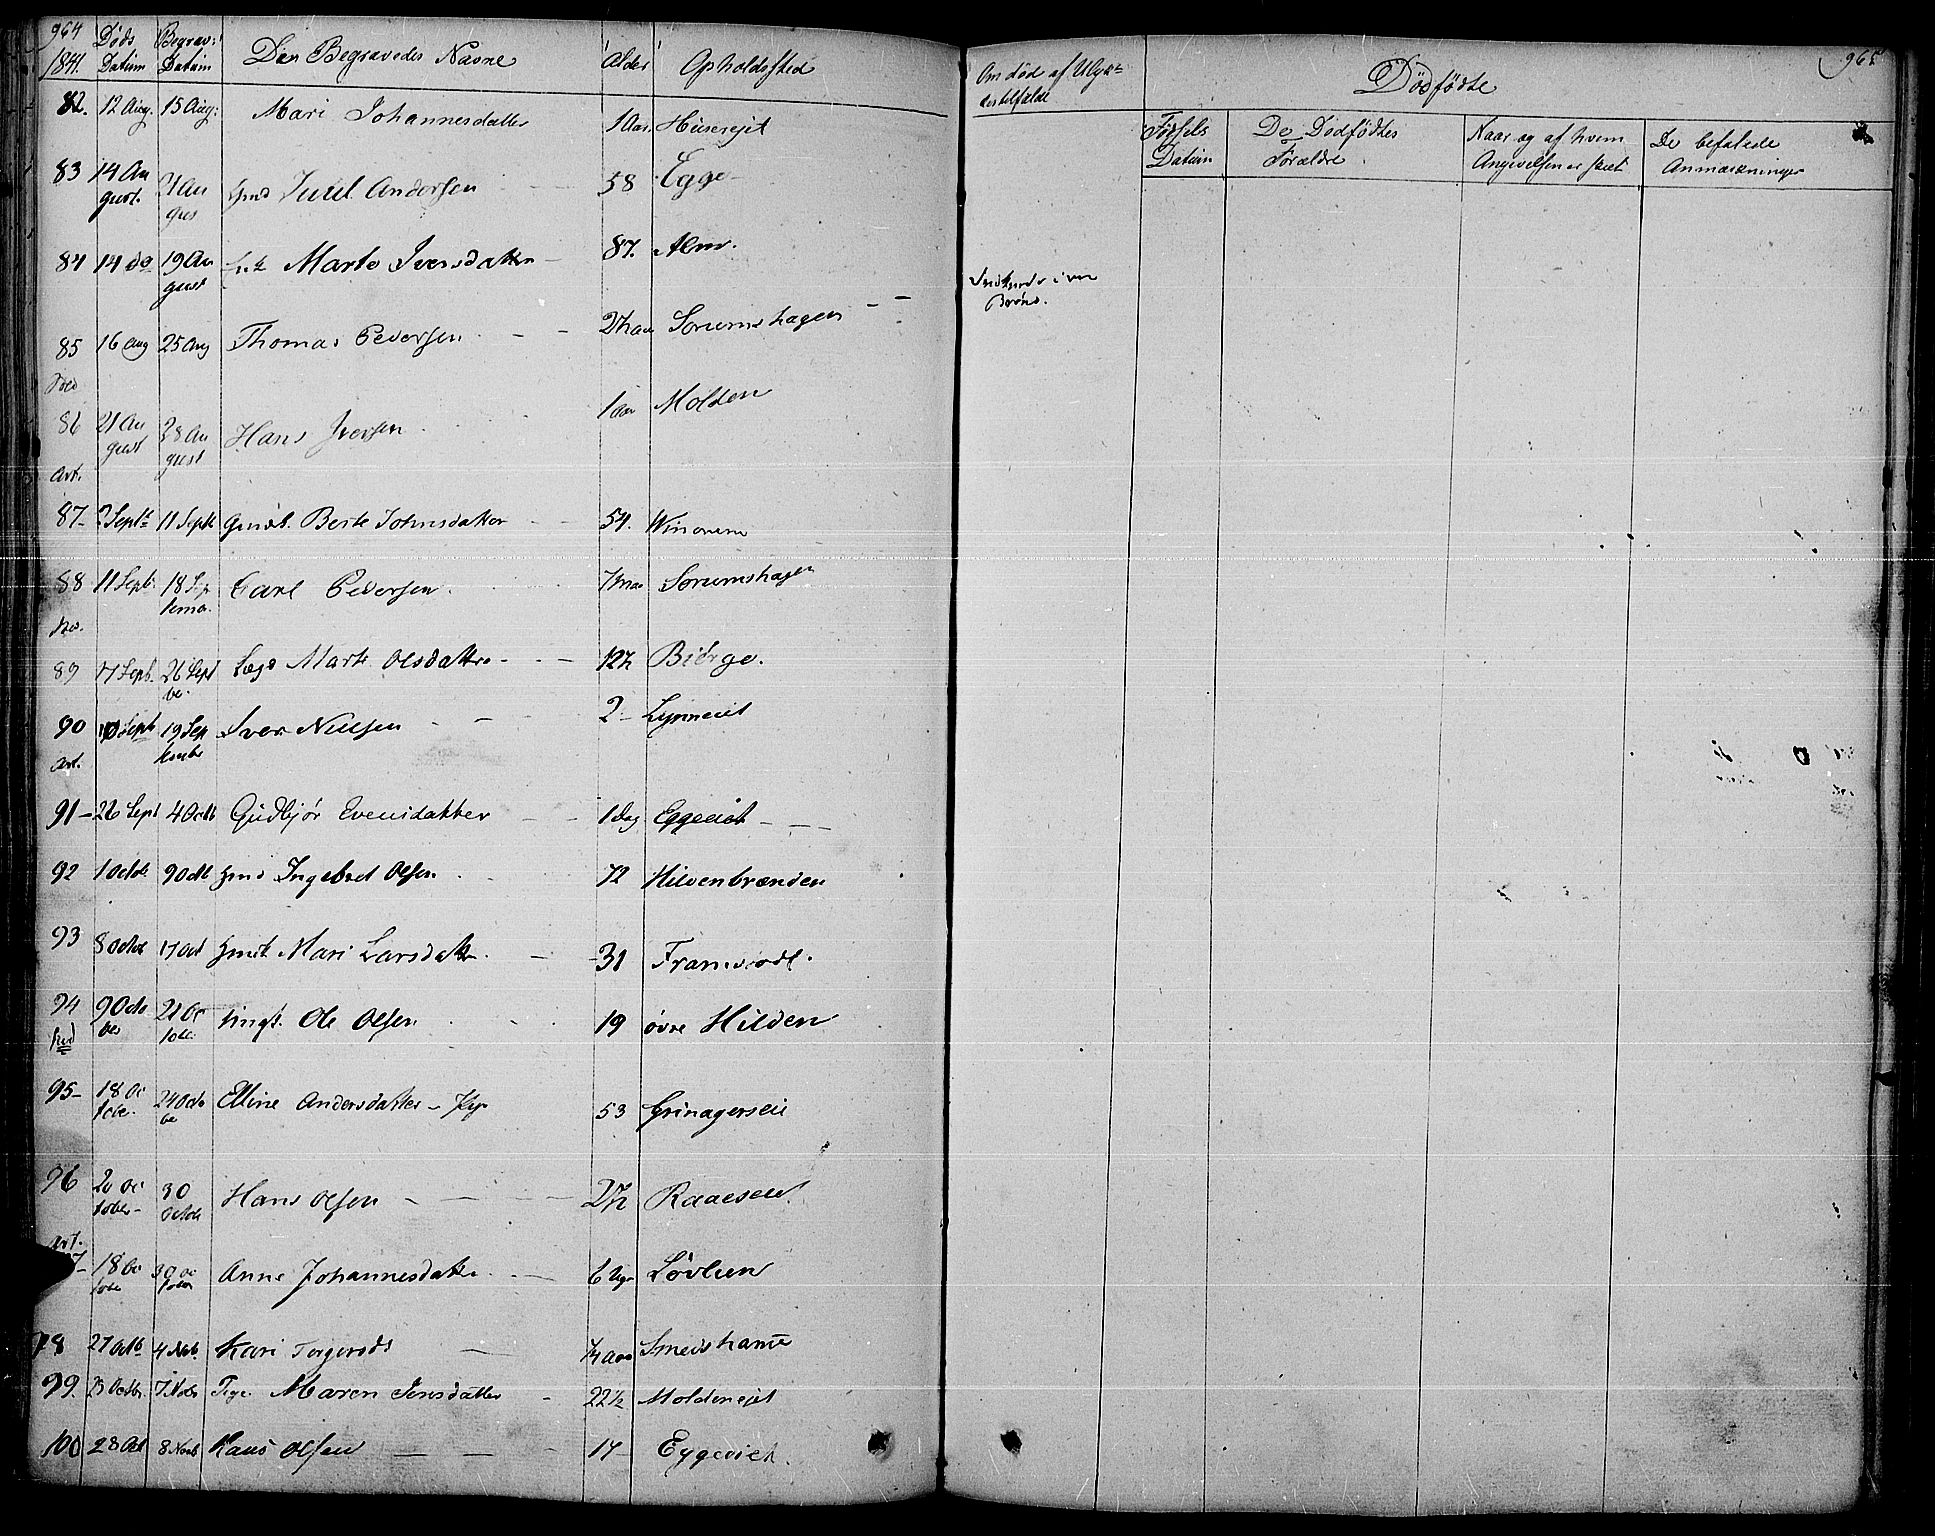 964
1841. Døds Datum Begrav: Datum Den Begravedes Navne Alder Opholdssted
82. 12 Aug. 15 Aug: Mari Johannesdatter 1 Aar Huserejet
83 14 August. 21 Augus Gmd Juul Andersen 58 Egge
84 14 do 19 August Marte Iversdatter 87. Alm.
85 16 Aug 25 Aug Thomas Pedersen 2½ aar Sorumshagen
86 21 August 28 August Hans Iversen 1 aar Molden
87- 2 Septr 11 Septb Gmdk. Berte Johnsdatter 54.
88 11 Septb. 18 Septembr. Carl Pedersen Sorumshagen
89 17 Septb. 26 Septbr. Lægd Marte Olsdatter 12½ Biørge.
90 10 Septb 19 September Iver Nielsen 2 Lynneiet
Art.
91 - 26 Sept 4 Octb Gudbjør Evensdatter 1 Dag Eggeeiet
92 1 Octb. 9 Octb Gmd Ingebret Olsen 72 Hildenbrænden
93 8 Octbr 17 Oct Gmdk Mari Larsdatter 31
94 9 October 21 October Ungk. Ole Olsen 19 øvre Hilden
95- 18 October. 24 October Elline Andersdatter 53 Grinagerseie
96 20 October 30 Octob Hans Olsen 2½ Raaeseiet
Art.
18 October 30 October Anne Johannesdatter 6 Uger Løvlien
98 27 Octb 4 Novb. Kari Torgersd Smedshamr
99. 23 Octbr. 7 Novbr Pige Maren Jensdatter 22½ Moldenejet
100 28 Oct 8 Novb Hans Olsen 14 Eggeeiet.
965
Om død af Ulyk-
kestilfælde
Dødfødte
Fødsels Datum
De Dødfødtes Forældre.
Naar og af hvem Angivelsen er skeet
De befalede Anmærkninger
Druknede i en
Brønd.